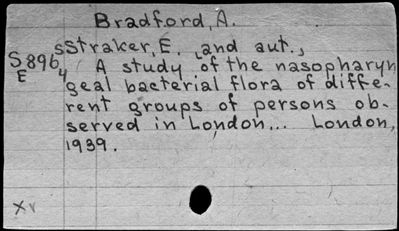 Bradford, A.
sStraker, E. and aut.,
S896
E
4
A study of the nasopharyn
geal bacterial flora of diffe-
rent groups of persons ob-
served in London... London,
1939.
xv